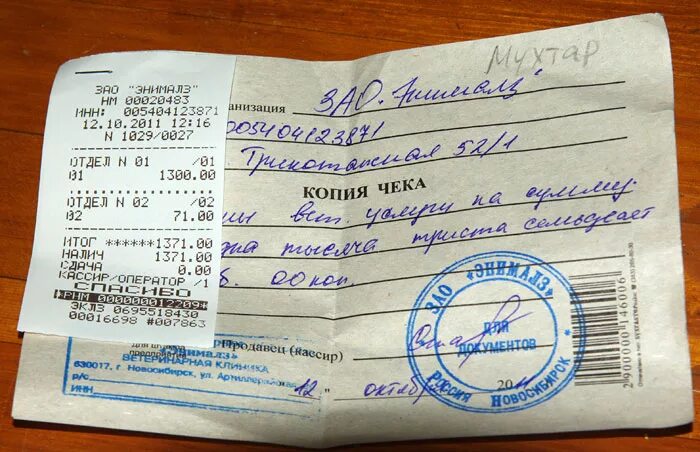 ЗАО "ЭНИМАЛЗ"
НМ 00020483
ИНН: 005404123871
12.10.2011 12:16
N 1029/0027
ОТДЕЛ N 01 /01
01 1300.00
ОТДЕЛ N 02 /02
02 71.00
ИТОГ ******1371.00
НАЛИЧ 1371.00
СДАЧА 0.00
КАССИР/ОПЕРАТОР /1
СПАСИБО
*РНМ 000000012209*
ЭКЛЗ 0695518430
00016698 #007863
Мухтар
анизация ЗАО "Энималз"
005404123871
. Трикотажная 52/1
КОПИЯ ЧЕКА
ны вет. услуги на сумму:
дна тысяча триста семьдесят
б. 00 коп.
Продавец (кассир)
ЗАО "ЭНИМАЛЗ"
ДЛЯ
ДОКУМЕНТОВ
РОССИЯ НОВОСИБИРСК
Штамп
предприятия
"Энималз"
ВЕТЕРИНАРНАЯ КЛИНИКА
630017, г. Новосибирск, ул. Артиллерийская
р/с
ИНН
"12" октября 2011
2900000146006